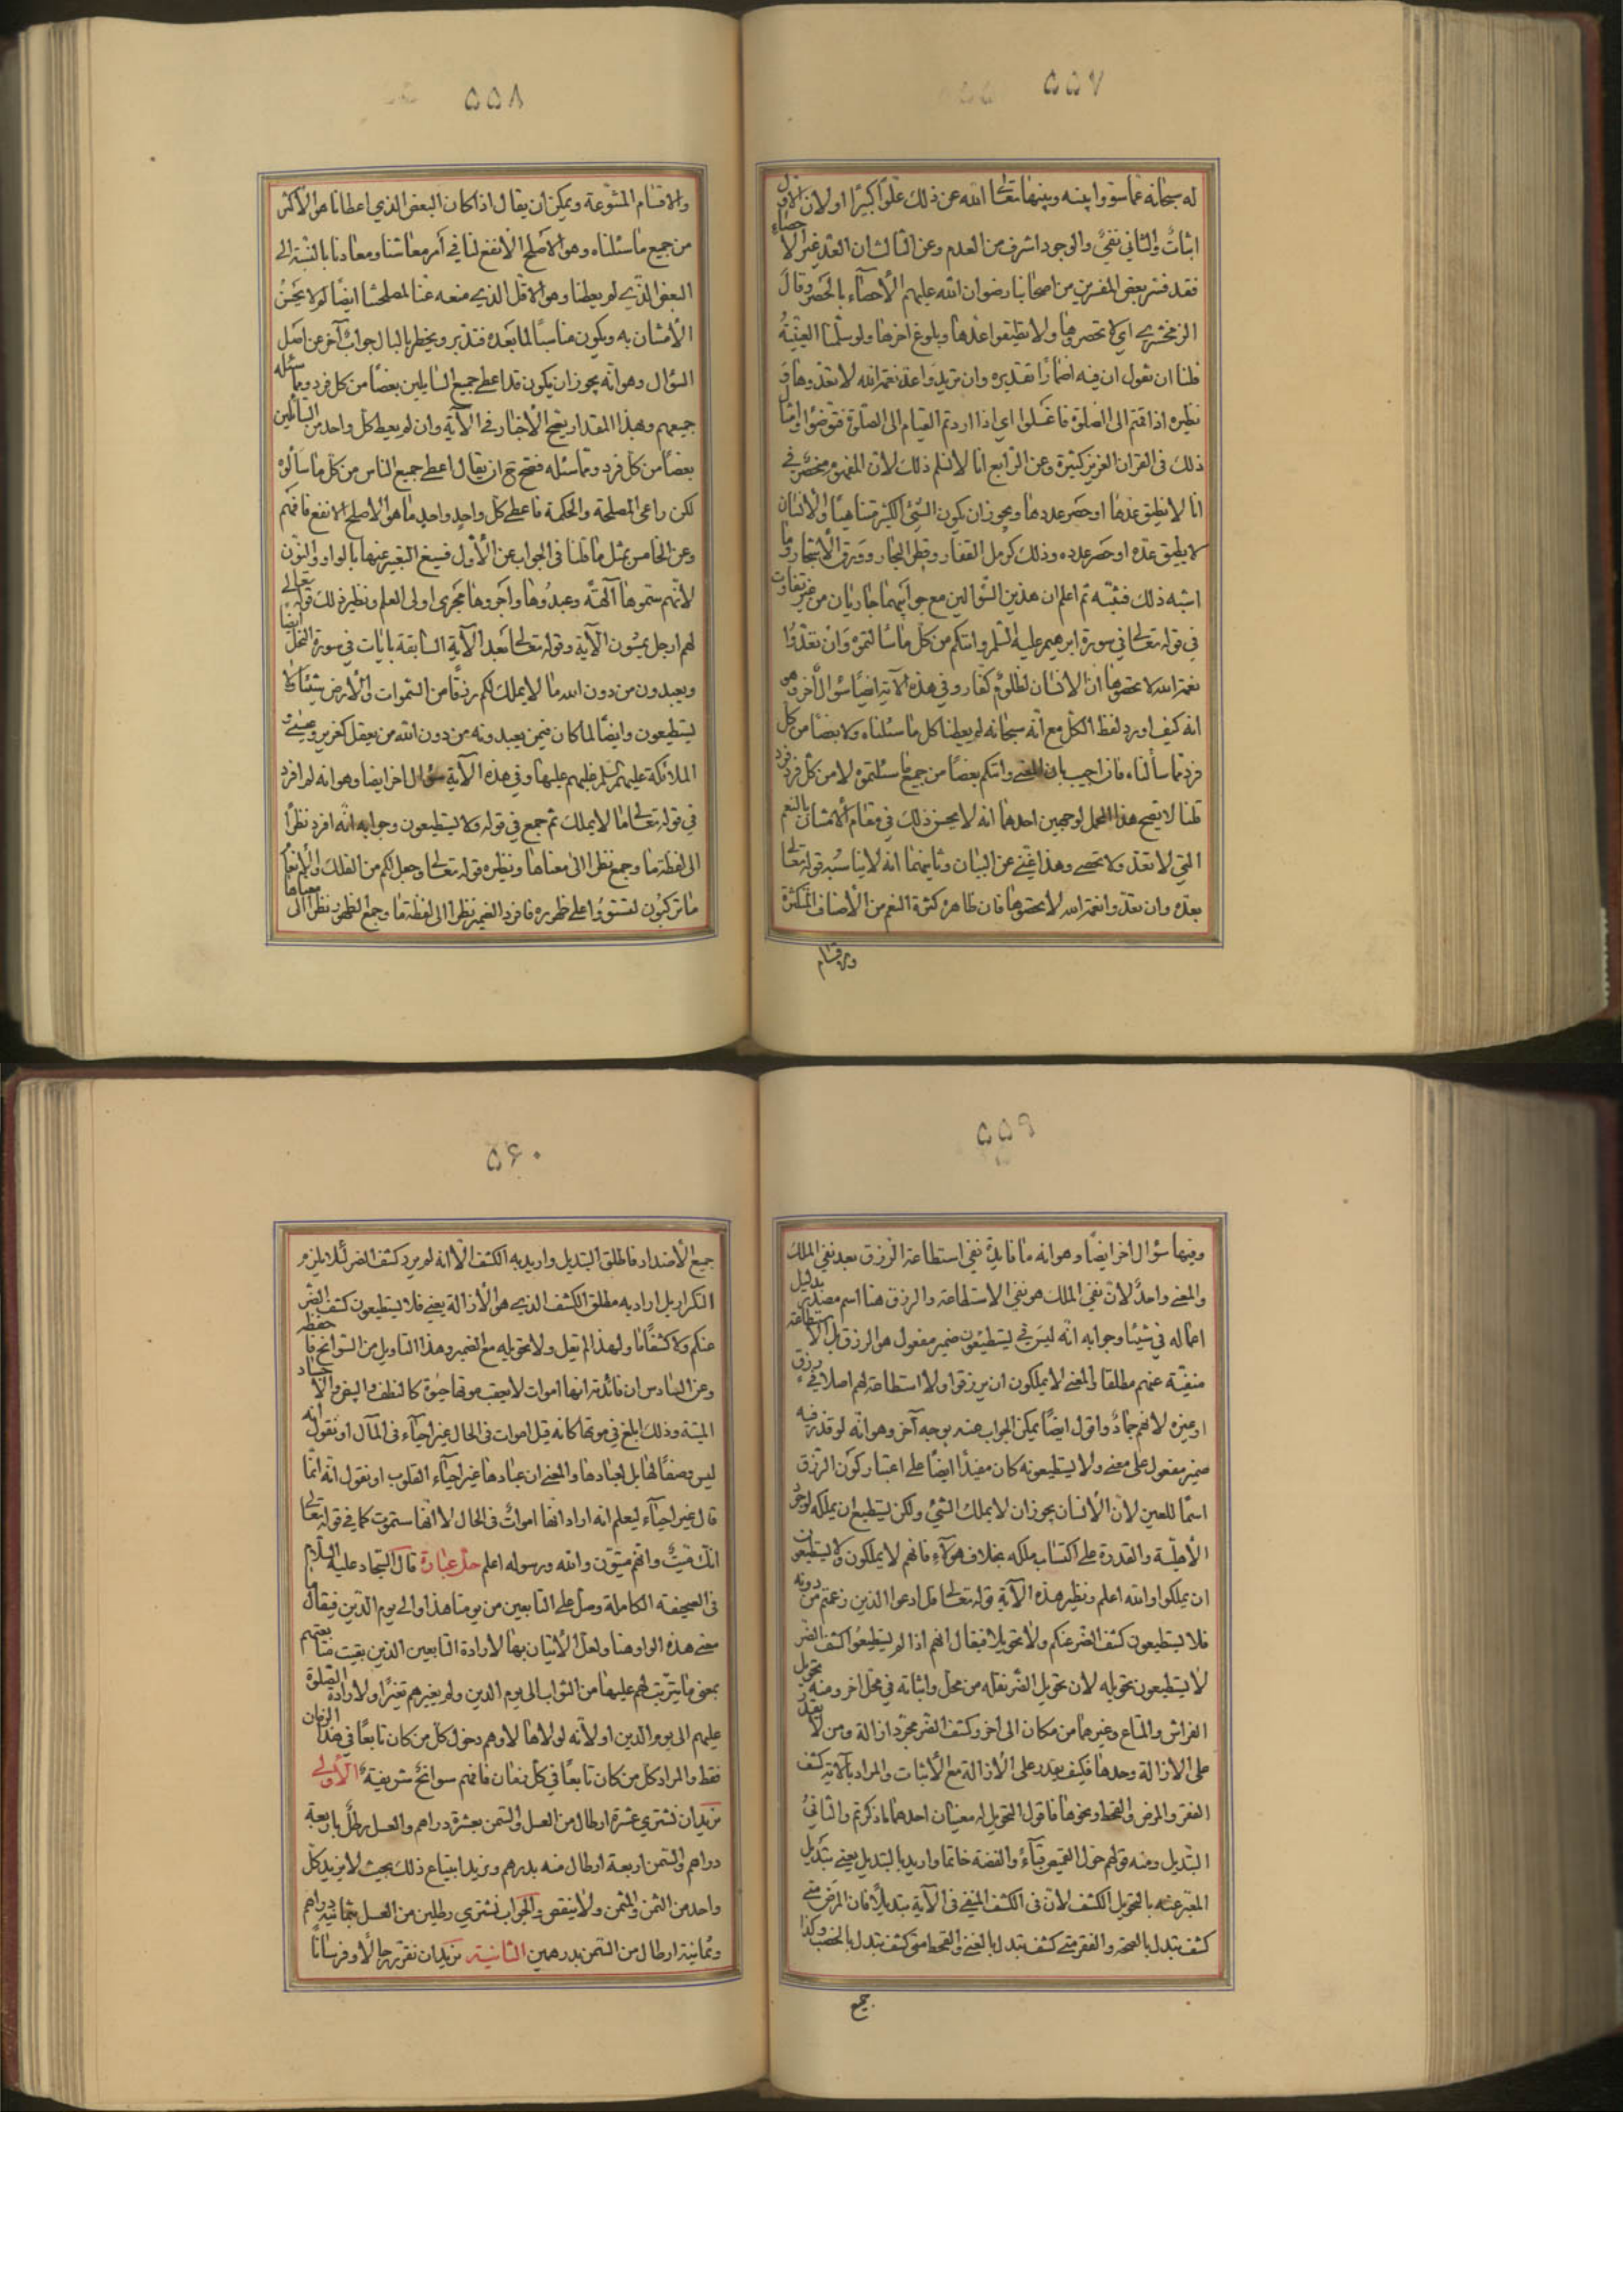 ۵۵۷
له سبحانه عما سووا بينه وبينها تعالى الله عن ذلك علوا كبيرا اولان الاول
اثبات والثاني نفي والوجود اشرف من العدم وعن الثالث ان العد غير الاحصاء
فقد فسر بعض المفسرين من اصحابنا رضوان الله عليهم الاحصاء بالحصر وقال
الزمخشري اي لا تحصروها ولا تطيقوا عدها وبلوغ اخرها ولو سلمنا العينية
قلنا ان نقول ان فيه اضمارا تقديره وان تريدوا عد نعمة الله لا تعدوها و
نظيره اذا قمتم الى الصلوة فاغسلوا اي اذا اردتم القيام الى الصلوة فتوضؤا وامثال
ذلك فى القران العزيز كثيرة وعن الرابع انا لا نسلم ذلك لان المفهوم منحصر في
انا لا نطيق عدها او حصر عددها ويجوز ان يكون الشئ الكثير متناهيا والانسان
لا يطيق عده او حصر عدده وذلك كرمل القفار وقطر البحار وورق الاشجار وما
اشبه ذلك فتنبه ثم اعلم ان هذين السؤالين مع جوابيهما جاريان من غير تفاوت
في قوله تعالى في سورة ابرهيم عليه السلم واتيكم من كل ما سالتموه وان تعدوا
نعمة الله لا تحصوها ان الانسان لظلوم كفار وفي هذه الاية ايضا سؤال اخر وهو
انه كيف اورد لفظ الكل مع انه سبحانه لم يعطنا كل ما سئلناه ولا بعضا من كل
فرد مما سألناه فان اجيب بان المعنى واتيكم بعضا من جميع ما سئلتموه لا من كل فرد فرد
قلنا لا يصح هذا المحمل لوجهين احدهما انه لا يحسن ذلك في مقام الامتنان بالنعم
التي لا تعد ولا تحصى وهذا غني عن البيان وثانيهما انه لا يناسبه قوله تعالى
بعده وان تعدوا نعمة الله لا تحصوها فان ظاهره كثرة النعم من الاصناف المتكثرة
والاقسام
۵۵۸
والاقسام المتنوعة ويمكن ان يقال اذا كان البعض الذي اعطانا هو الاكثر
من جميع ما سئلناه وهو الاصلح الانفع لنا في امر معاشنا ومعادنا بالنسبة الى
البعض الذي لم يعطنا وهو الاقل الذي منعه عنا لمصلحتنا ايضا لولا يحسن
الامتنان به ويكون مناسبا لما بعده فتدبر ويخطر بالبال جواب آخر عن اصل
السؤال وهو انه يجوز ان يكون قد اعطى جميع السايلين بعضا من كل فرد مما سئله
جميعهم وهذا المقدار يصح الاخبار في الآية وان لم يعط كل واحد من السائلين
بعضا من كل فرد مما سئله فصح ح ان يقال اعطى جميع الناس من كل ما سألوه
لكن راعى المصلحة والحكمة فاعطى كل واحد واحد ما هو الاصلح الانفع فافهم
وعن الخامس بمثل ما قلنا في الجواب عن الأول فسيغ التعبير عنها بالواو والنون
لانهم سموها آلهة وعبدوها واجروها مجرى اولى العلم ونظير ذلك قوله تعالى
لهم ارجل يمشون الآية وقوله تعالى بعد الآية السابقة بايات في سورة النحل ايضا
ويعبدون من دون الله ما لا يملك لكم رزقا من السموات والارض شيئا ولا
يستطيعون وايضا لما كان فيمن يعبدونه من دون الله من يعقل كعزير وعيسى و
الملائكة عليهم السلم غلبهم عليها وفي هذه الآية سؤال اخر ايضا وهو انه لم افرد
في قوله تعالى ما لا يملك ثم جمع في قوله ولا يستطيعون وجوابه انه افرد نظرا
الى لفظة ما وجمع نظرا الى معناها ونظيره قوله تعالى وجعل لكم من الفلك والانعام
ما تركبون لتستووا على ظهوره فافرد الضمير نظرا الى لفظة ما وجمع الظهور نظرا الى معناها
۵۵۹
وفيها سؤال اخر ايضا وهو انه ما فايدة نفي استطاعة الرزق بعد نفي الملك
والمعنى واحد لان نفي الملك هو نفي الاستطاعة والرزق هنا اسم مصدر بدليل
اعماله في شيئا وجوابه انه ليس في يستطيعون ضمير مفعول هو الرزق بل الاستطاعة
منفية عنهم مطلقا والمعنى لا يملكون ان يرزقوا ولا استطاعة لهم اصلا في رزق
او غيره لانهم جماد واقول ايضا يمكن الجواب عنه بوجه آخر وهو انه لو قدر فيه
ضمير مفعول على معنى ولا يستطيعونه كان مفيدا ايضا على اعتبار كون الرزق
اسما للعين لان الانسان يجوز ان لا يملك الشئ ولكن يستطيع ان يملكه لوجود
الأهلية والقدرة على اكتساب ملكه بخلاف هؤلاء فانهم لا يملكون ولا يستطيعون
ان يملكوا والله اعلم ونظير هذه الآية قوله تعالى قل ادعوا الذين زعمتم من دونه
فلا يستطيعون كشف الضر عنكم ولا تحويلا فيقال انهم اذا لم يستطيعوا كشف الضر
لا يستطيعون تحويله لان تحويل الضر نقله من محل واثباته في محل اخر ومنه تحويل
الفراش والمتاع وغيرهما من مكان الى اخر وكشف الضر مجرد ازالة ومن لا يقدر
على الازالة وحدها فكيف يقدر على الازالة مع الاثبات والمراد بالآية كشف
الفقر والمرض والقحط ونحوها فاقول التحويل له معنيان احدهما ما ذكرتم والثاني
التبديل ومنه قولهم حول القميص قباء والفضة خاتما واريد بالتبديل يعني بتبديل
المعبر عنه بالتحويل الكشف لان فى الكشف المنفى فى الآية تبديلا فان المرض متى
كشف تبدل بالصحة والفقر متى كشف تبدل بالغنى والقحط متى كشف تبدل بالخصب وكذا
جميع
۵۶۰
جميع الاضداد فاطلق التبديل واريد به الكشف الا انه لم يرد كشف الضر لئلا يلزم
التكرار بل اراد به مطلق الكشف الذي هو الازالة يعني فلا يستطيعون كشف الضر
عنكم ولا كشفا ما ولهذا لم يقل ولا تحويله مع الضمير وهذا التاويل من السوانح فاحفظه
وعن السادس ان فائدته انها اموات لا يعقب موتها حيوة كالنطف والبيض والاجساد
الميتة وذلك ابلغ في موتها كانه قيل اموات فى الحال غير احياء فى المآل او نقول انه
ليس وصفا لها بل لعبادها والمعنى ان عبادها غير احياء القلوب او نقول انه انما
قال غير احياء ليعلم انه اراد انها اموات فى الحال لا انها ستموت كما في قوله تعالى
انك ميت وانهم ميتون والله ورسوله اعلم حل عبارة قال السجاد عليه السلام
فى الصحيفة الكاملة وصل على التابعين من يومنا هذا والى يوم الدين فيقال ما
معنى هذه الواو هنا ولعل الاتيان بها لارادة التابعين الذين بقيت متابعتهم
بمعنى ما يترتب لهم عليها من الثواب الى يوم الدين ولم يغيرهم تغيرا ولا رادة الصلوة
عليهم الى يوم الدين او لانه لولاها لاوهم دخول كل من كان تابعا في هذا الزمان
فقط والمراد كل من كان تابعا في كل زمان فافهم سوانح شريفة الاولى
نريد ان نشتري عشرة ارطال من العسل والسمن بعشرة دراهم والعسل رطل باربعة
دراهم والسمن اربعة ارطال منه بدرهم ونريد ابتياع ذلك بحيث لا يزيد كل
واحد من الثمن والمثمن ولا ينقص والجواب نشتري رطلين من العسل بثمانية دراهم
وثمانية ارطال من السمن بدرهمين الثانية نريد ان نفرز رجالا وفرسانا